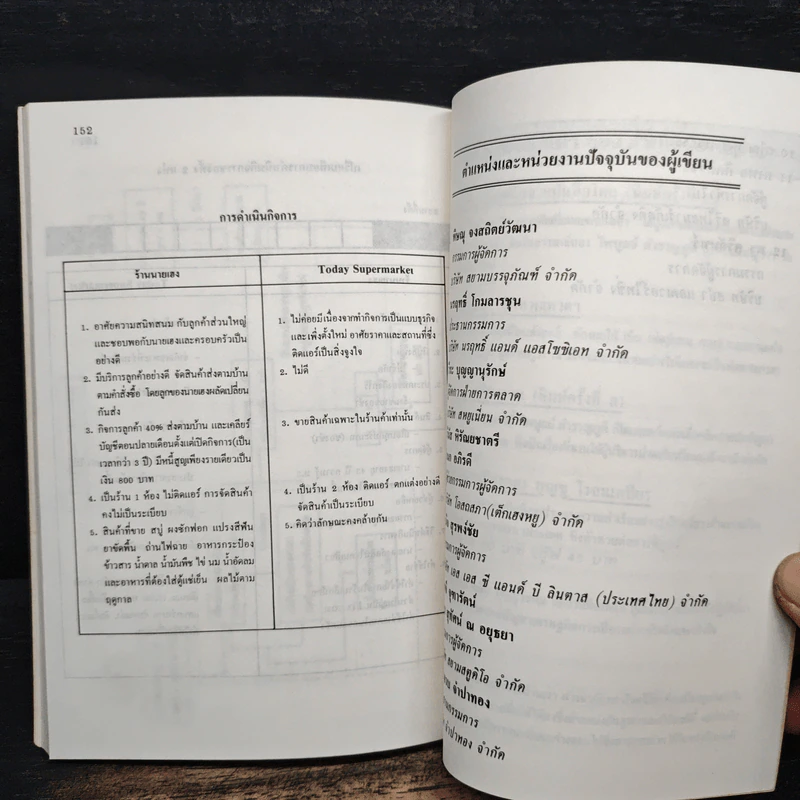 152
การดำเนินกิจการ
ร้านนายเฮง
Today Supermarket
1. อาศัยความสนิทสนม กับลูกค้าส่วนใหญ่
และชอบพอกับนายเฮงและครอบครัวเป็น
อย่างดี
2. มีบริการลูกค้าอย่างดี จัดสินค้าส่งตามบ้าน
ตามคำสั่งซื้อ โดยลูกของนายเฮงผลัดเปลี่ยน
กันส่ง
3. กิจการลูกค้า 40% ส่งตามบ้าน และเคลียร์
บัญชีตอนปลายเดือนตั้งแต่เปิดกิจการ(เป็น
เวลากว่า 3 ปี) มีหนี้สูญเพียงรายเดียวเป็น
เงิน 800 บาท
4. เป็นร้าน 1 ห้อง ไม่ติดแอร์ การจัดสินค้า
คงไม่เป็นระเบียบ
5. สินค้าที่ขาย สบู่ ผงซักฟอก แปรงสีฟัน
ยาขัดพื้น ถ่านไฟฉาย อาหารกระป๋อง
ข้าวสาร น้ำตาล น้ำมันพืช ไข่ นม น้ำอัดลม
และอาหารที่ต้องใส่ตู้แช่เย็น ผลไม้ตาม
ฤดูกาล
1. ไม่ค่อยมีเนื่องจากทำกิจการเป็นแบบธุรกิจ
และเพิ่งตั้งใหม่ อาศัยราคาและสถานที่ซึ่ง
ติดแอร์เป็นสิ่งจูงใจ
2. ไม่ดี
3. ขายสินค้าเฉพาะในร้านค้าเท่านั้น
4. เป็นร้าน 2 ห้อง ติดแอร์ ตกแต่งอย่างดี
จัดสินค้าเป็นระเบียบ
5. คิดว่าลักษณะคงคล้ายกัน
ตำแหน่งและหน่วยงานปัจจุบันของผู้เขียน
พิษณุ จงสถิตย์วัฒนา
กรรมการผู้จัดการ
บริษัท สยามบรรจุภัณฑ์ จำกัด
โกมลารชุน
ประธานกรรมการ
บริษัท นรฤทธิ์ แอนด์ แอสโซซิเอท จำกัด
บุญญานุรักษ์
ผู้จัดการฝ่ายการตลาด
บริษัท สหยูเนี่ยน จำกัด
หิรัณยชาตรี
อภิรดี
กรรมการผู้จัดการ
โอสถสภา(เต็กเฮงหยู) จำกัด
สุรพงษ์ชัย
ผู้จัดการ
เอส เอส ซี แอนด์ บี ลินตาส (ประเทศไทย) จำกัด
จุฑารัตน์
สุทัศน์ ณ อยุธยา
ผู้จัดการ
สยามสตูดิโอ จำกัด
จำปาทอง
กรรมการ
จำปาทอง จำกัด